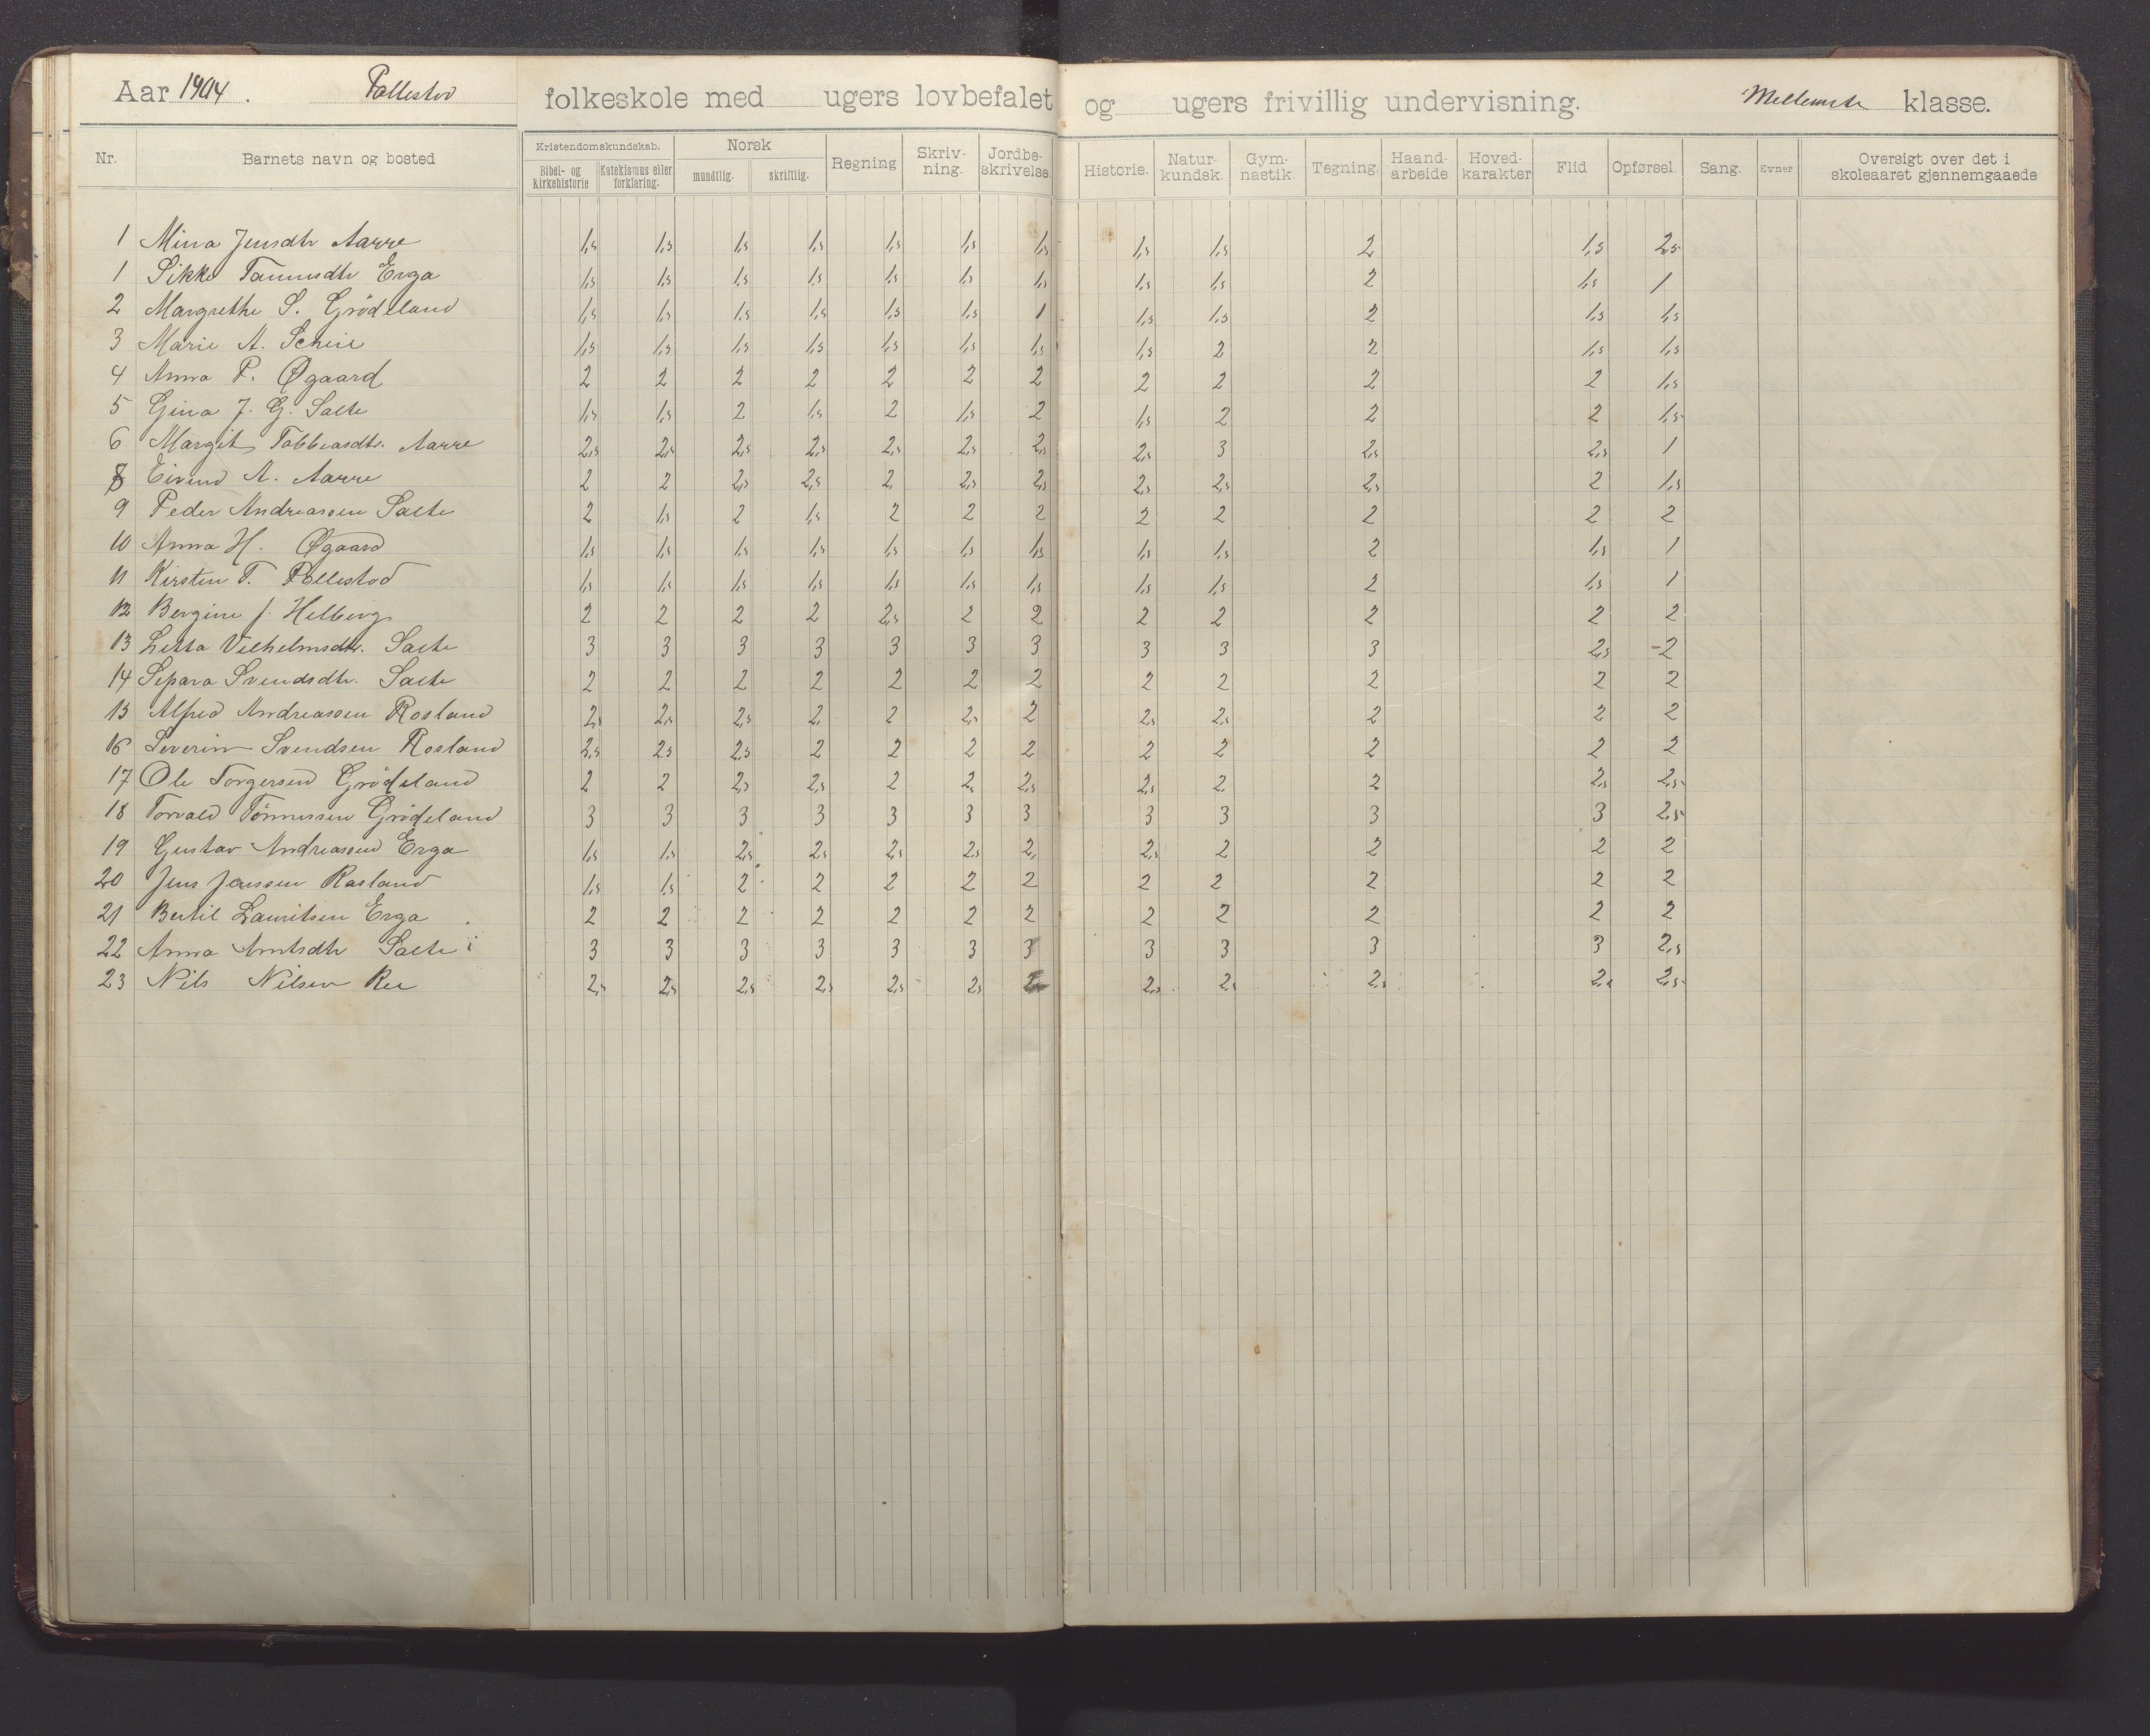 Aar 1904. Pollestad folkeskole med ugers lovbefalet og ugers frivillig undervisning. Mellemste klasse.
Nr. Barnets navn og bosted Kristendomskundskab. Bibel- og kirkehistorie Katekismus eller forklaring. Norsk mundtlig. skriftlig. Regning Skriv-ning. Jordbe-skrivelse. Historie. Natur-kundsk. Gym-nastik Tegning. Haand-arbeide Hoved-karakter Flid Opførsel. Sang. Evner Oversigt over det i skoleaaret gjennemgaaede
1 Mina Jensdtr Aarre 1,5 1,5 1,5 1,5 1,5 1,5 1,5 1,5 1,5 2 1,5 2,5
1 Sikke Tønnesdtr Erga 1,5 1,5 1,5 1,5 1,5 1,5 1,5 1,5 1,5 2 1,5 1
2 Margrethe S. Grødeland 1,5 1,5 1,5 1,5 1,5 1,5 1 1,5 1,5 2 1,5 1,5
3 Marie A. Scheie 1,5 1,5 1,5 1,5 1,5 1,5 1,5 1,5 2 2 1,5 1,5
4 Anna P. Øgaard 2 2 2 2 2 2 2 2 2 2 2 1,5
5 Gina J. G. Salte 1,5 1,5 2 1,5 2 1,5 2 1,5 2 2 2 1,5
6 Margit Tobbiasdtr. Aarre 2,5 2,5 2,5 2,5 2,5 2,5 2,5 2,5 3 2,5 2,5 1
8 Eivind A. Aarre 2 2 2,5 2,5 2, 2,5 2,5 2,5 2,5 2,5 2 1,5
9 Peder Andreassen Salte 2 1,5 2 1,5 2 2 2 2 2 2 2 2
10 Anna H. Øgaard 1,5 1,5 1,5 1,5 1,5 1,5 1,5 1,5 1,5 2 1,5 1
11 Kirsten T. Pollestad 1,5 1,5 1,5 1,5 1,5 1,5 1,5 1,5 1,5 2 1,5 1
12 Bergine J. Helberg 2 2 2 2 2,5 2 2 2 2 2 2 2
13 Letta Vilhelmsdtr. Salte 3 3 3 3 3 3 3 3 3 3 2,5 -2
14 Separa Svendsdtr. Salte 2 2 2 2 2 2 2 2 2 2 2 2
15 Alfred Andreassen Rosland 2,5 2,5 2,5 2, 2 2,5 2 2,5 2,5 2 2 2
16 Severin Svendsen Rosland 2,5 2,5 2,5 2 2 2 2 2 2 2 2 2
17 Ole Torgersen Grødeland 2 2 2,5 2,5 2 2,5 2,5 2,5 2, 2 2,5 2,5
18 Torvald Tønnessen Grødeland 3 3 3 3 3 3 3 3 3 3 3 2,5
19 Gustav Andreassen Erga 1,5 1,5 2,5 2,5 2,5 2,5 2, 2,5 2 2 2 2
20 Jens Jenssen Rosland 1,5 1,5 2 2 2 2 2 2 2 2 2 2
21 Bertil Lauritsen Erga 2 2 2 2 2 2 2 2 2 2 2 2
22 Anna Arntsdtr Salte 3 3 3 3 3 3 3 3 3 3 3 2,5
23 Nils Nilsen Ree 2,5 2,5 2,5 2,5 2,5 2,5 2 2,5 2,5 2,5 2,5 2,5